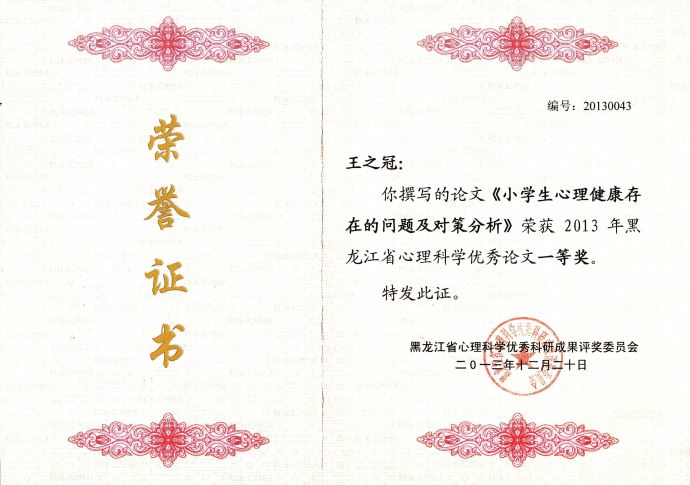 荣誉证书
编号：20130043
王之冠：
你撰写的论文《小学生心理健康存
在的问题及对策分析》荣获 2013 年黑
龙江省心理科学优秀论文一等奖。
特发此证。
黑龙江省心理科学优秀科研成果评奖委员会
二０一三年十二月二十日